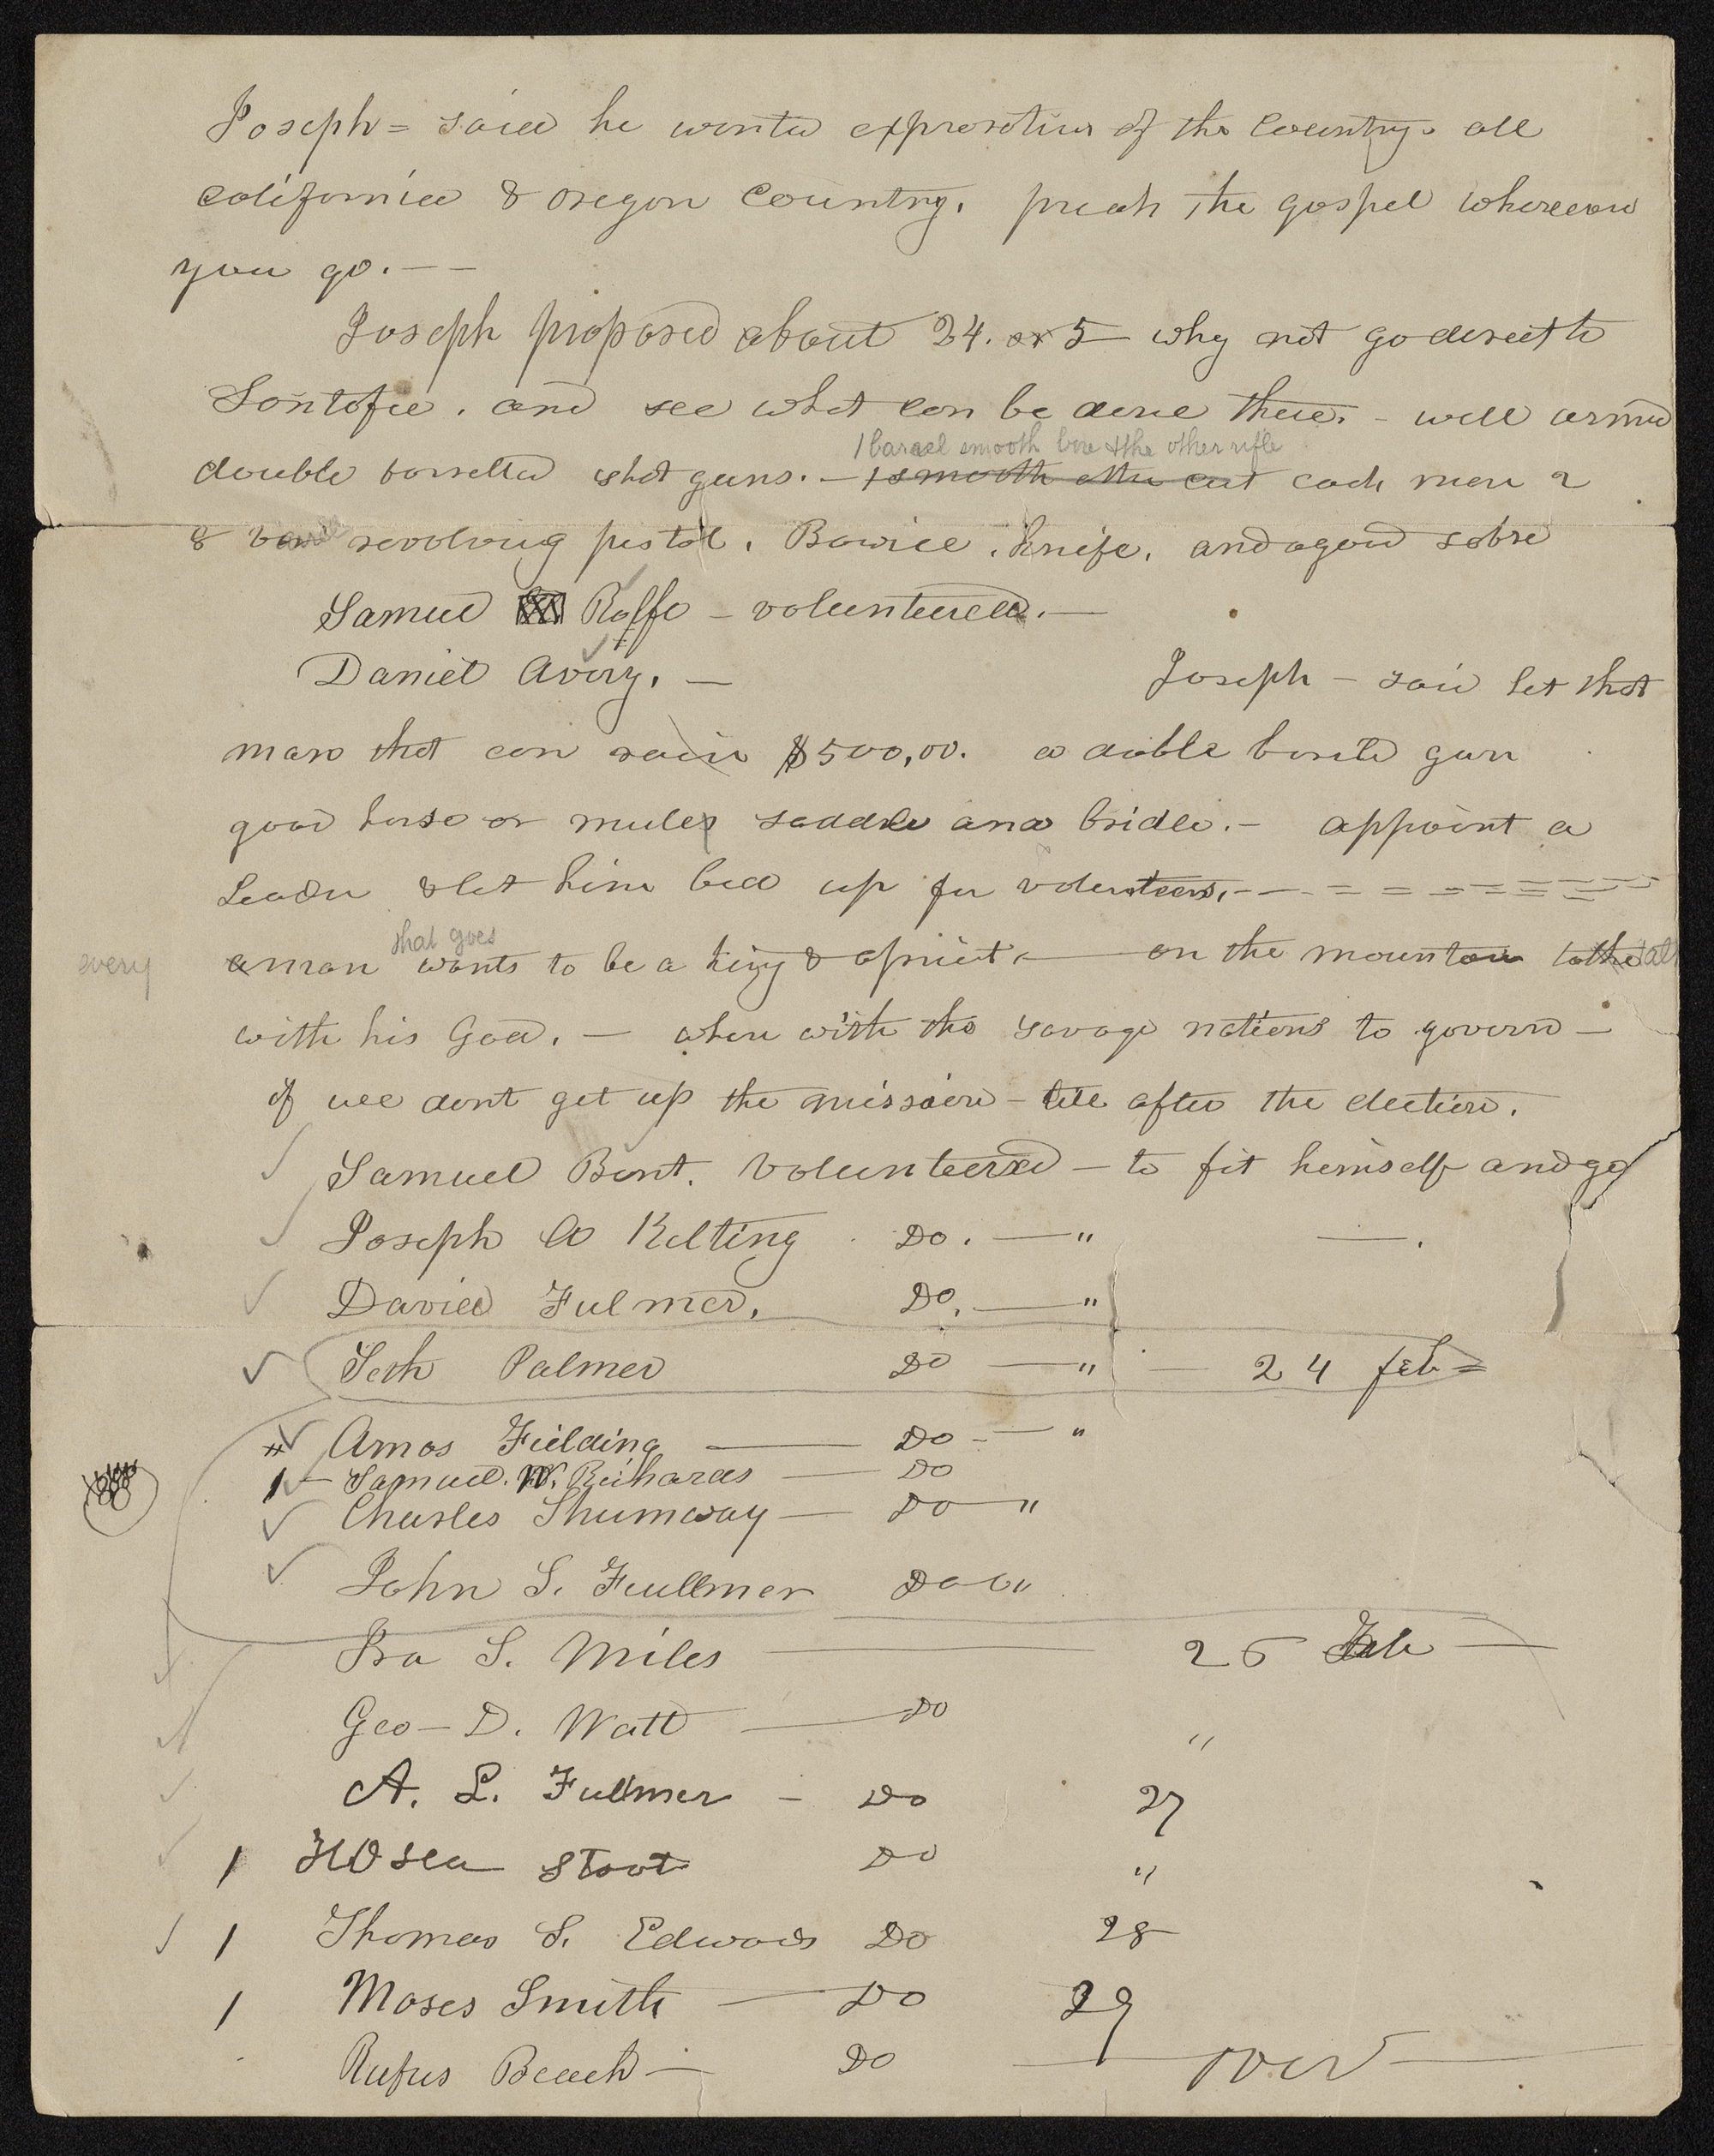 Joseph = said he wants exploration of the Country. all
California & oregon Country. preach the gospel wherever
you go. — —
Joseph proposed about 24. or 5 — why not go direct to
Santafee. and see what can be done there. - well armed
1 barael smooth bore & the other rifle
double barrelled shot guns. — 1 smooth other cut each man 2
& revolving pistol. Bowiee. knife. and a good sabre
Samuel Rolfe — volunteered. —
Daniel Avery. —
Joseph — said let that
man that can raise $500,00. a double barrelled gun
good horse or mules saddle and bridle. — appoint a
Leader & let him beat up for volunteers. — — = = = = = =
that goes
every a man wants to be a king & a priest. — on the mountain to the talk
with his God. — when with the savage nations to govern —
if we dont get up the mission — till after the election.
Samuel Bent. volunteered — to fit himself and go
Joseph A Kelting Do. — "  — .
David Fulmer. Do. — "
Seth Palmer Do — " — 24 feb =
# Amos Fielding — Do - — "
1 — Samuel. W. Richards — Do
Charles Shumway — Do — "
John S. Fullmer Do — "
Ira S. Miles — 26 Feb —
Geo — D. Watt — Do "
A. L. Fullmer - Do 27
1 HOsea Stout Do "
1 Thomas S. Edwards Do 28
1 Moses Smith — Do 29
Rufus Beach — Do — over —